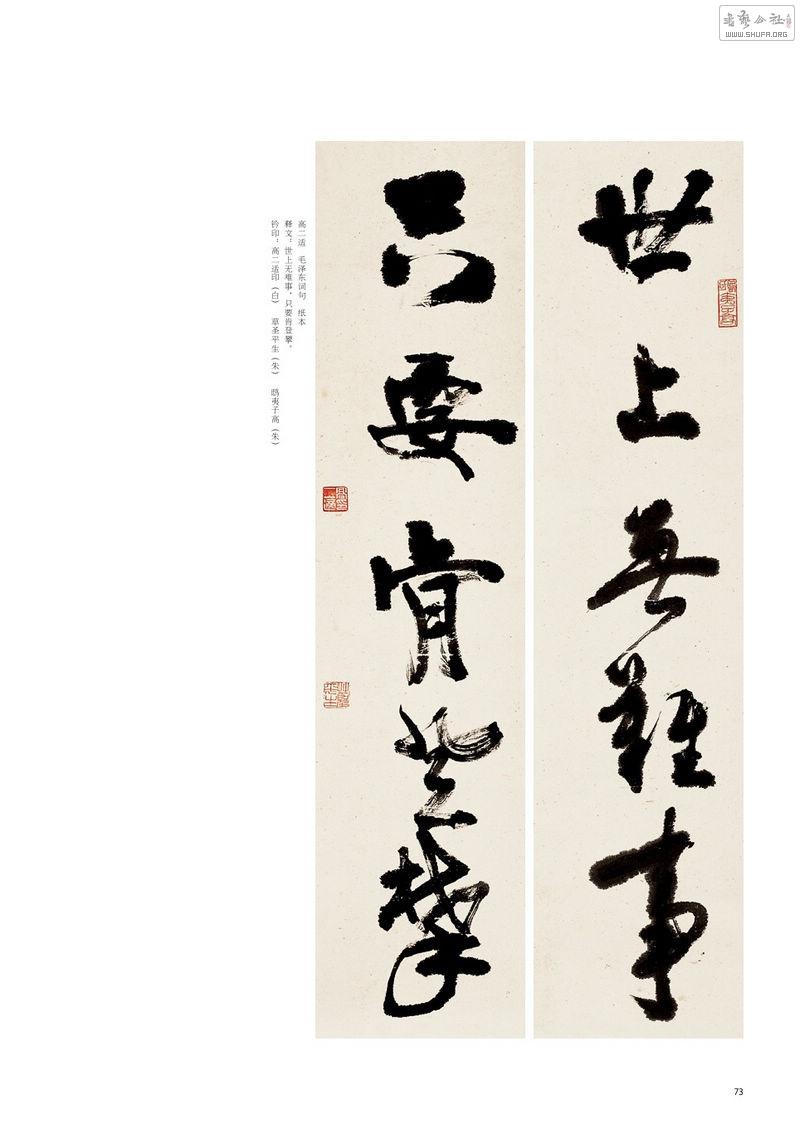 書藝公社
WWW.SHUFA.ORG
世上無難事
只要肯登攀
高二适 毛泽东词句 纸本
释文：世上无难事，只要肯登攀。
钤印：高二适印（白） 草圣平生（朱） 鸱夷子高（朱）
73